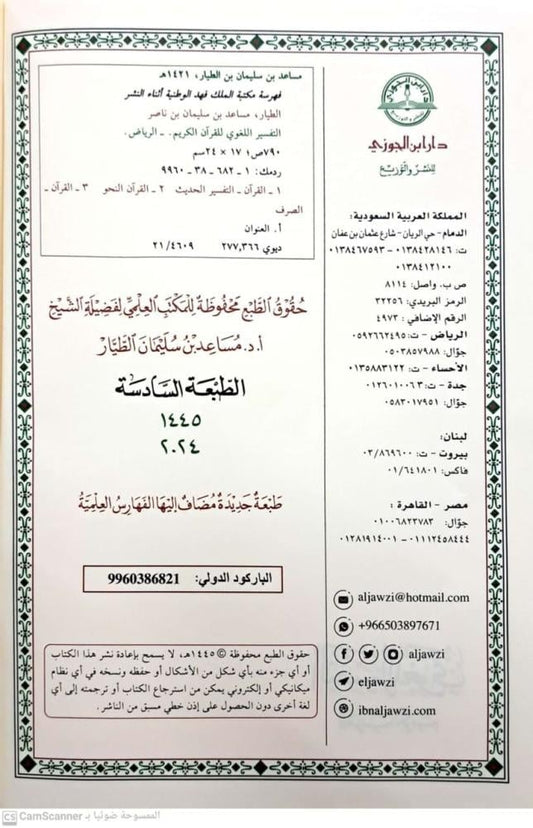 دار ابن الجوزي
للنشر والتوزيع
المملكة العربية السعودية:
الدمام - حي الريان - شارع عثمان بن عفان
ت: ٠١٣٨٤٢٨١٤٦ - ٠١٣٨٤٦٧٥٩٣
٠١٣٨٤١٢١٠٠
ص ب. واصل: ٨١١٤
الرمز البريدي: ٣٢٢٥٦
الرقم الإضافي: ٤٩٧٣
الرياض - ت: ٠٥٩٢٦٦٢٤٩٥
جوّال: ٠٥٠٣٨٥٧٩٨٨
الأحساء - ت: ٠١٣٥٨٨٣١٢٢
جدة - ت: ٠١٢٦٠١٠٠٦٣
جوّال: ٠٥٨٣٠١٧٩٥١
لبنان:
بيروت - ت: ٠٣/٨٦٩٦٠٠
فاكس: ٠١/٦٤١٨٠١
مصر - القاهرة:
جوّال: ٠١٠٠٦٨٢٣٧٨٣
٠١١١٢٤٥٨٤٤٤ - ٠١٢٨١٩١٤٠٠١
aljawzi@hotmail.com
+966503897671
aljawzi
eljawzi
ibnaljawzi.com
مساعد بن سليمان بن الطيار، ١٤٢١هـ
فهرسة مكتبة الملك فهد الوطنية أثناء النشر
الطيار، مساعد بن سليمان بن ناصر
التفسير اللغوي للقرآن الكريم. ـ الرياض.
٧٩٠ص؛ ١٧ × ٢٤سم
ردمك: ١ - ٦٨٢ - ٣٨ - ٩٩٦٠
١ ـ القرآن ـ التفسير الحديث ٢ ـ القرآن النحو ٣ ـ القرآن ـ
الصرف
أ. العنوان
ديوي ٢٧٧,٣٦٦ ٢١/٤٦٠٩
حقوق الطبع محفوظة للمكتب العلمي لفضيلة الشيخ
أ.د. مساعد بن سليمان الطيار
الطبعة السادسة
١٤٤٥
٢٠٢٤
طبعة جديدة مضاف إليها الفهارس العلمية
الباركود الدولي: 9960386821
حقوق الطبع محفوظة © ١٤٤٥هـ، لا يسمح بإعادة نشر هذا الكتاب
أو أي جزء منه بأي شكل من الأشكال أو حفظه ونسخه في أي نظام
ميكانيكي أو إلكتروني يمكن من استرجاع الكتاب أو ترجمته إلى أي
لغة أخرى دون الحصول على إذن خطي مسبق من الناشر.
CS CamScanner الممسوحة ضوئيا بـ